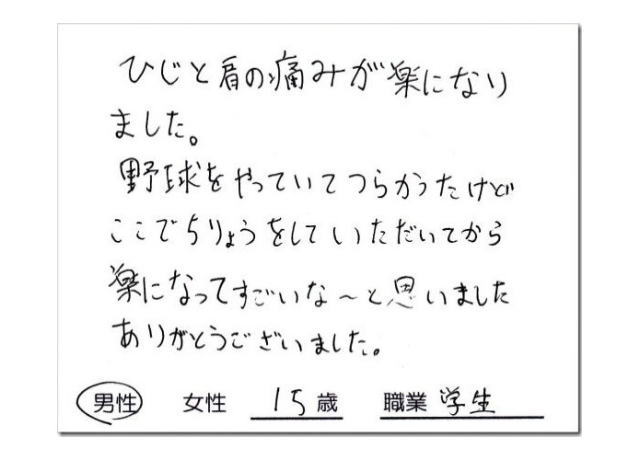 ひじと肩の痛みが楽になり
ました。
野球をやっていてつらかったけど
ここでちりょうをしていただいてから
楽になってすごいな～と思いました
ありがとうございました。
男性 女性 15歳 職業 学生